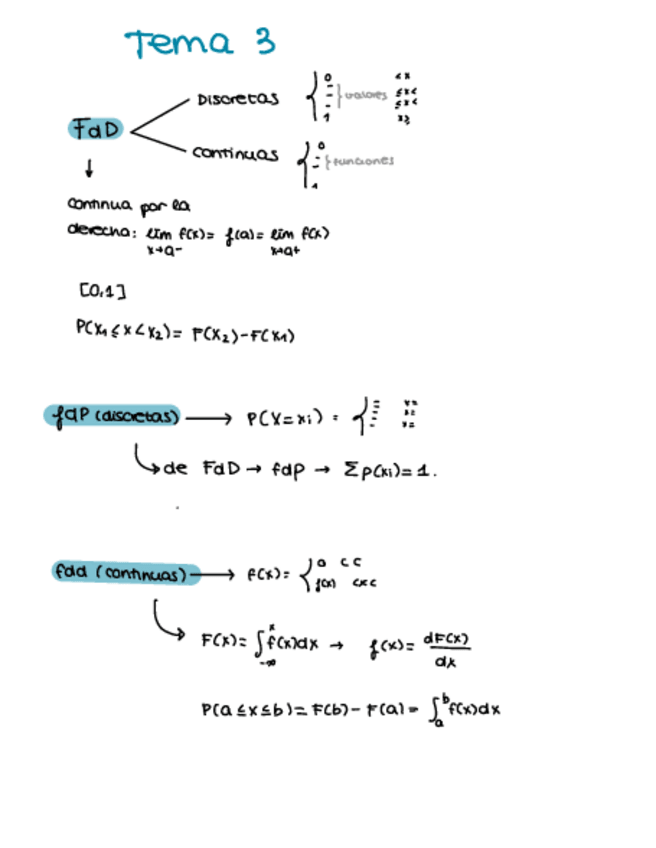 Tema 3
FdD
Discretas { 0 - - - 1 } valores <x ≤x< ≤x< x≥
continuas { 0 - - 1 } funciones
↓
continua por la
derecha: lim f(x) = f(a) = lim f(x)
x→a- x→a+
[0,1]
P(x₁ ≤ x < x₂) = F(x₂) - F(x₁)
fdP (discretas) → P(X=xi) = { - - - - x= x= x=
↳ de FdD → fdp → Σ p(xi) = 1.
fdd (continuas) → f(x) = { 0 < <
f(x) <x<
↳ F(x) = ∫_{-∞}^{x} f(x)dx → f(x) = dF(x)/dx
P(a ≤ x ≤ b) = F(b) - F(a) = ∫_a^b f(x)dx